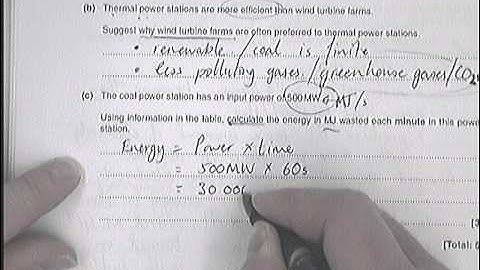 (b) Thermal power stations are more efficient than wind turbine farms.
Suggest why wind turbine farms are often preferred to thermal power stations.
• renewable / coal is finite
• less polluting gases / greenhouse gases / CO2
(c) The coal power station has an input power of 500MW MJ/s
Using information in the table, calculate the energy in MJ wasted each minute in this power
station.
Energy = Power x time
= 500MW x 60s
= 30 000
[3
[Total: 6